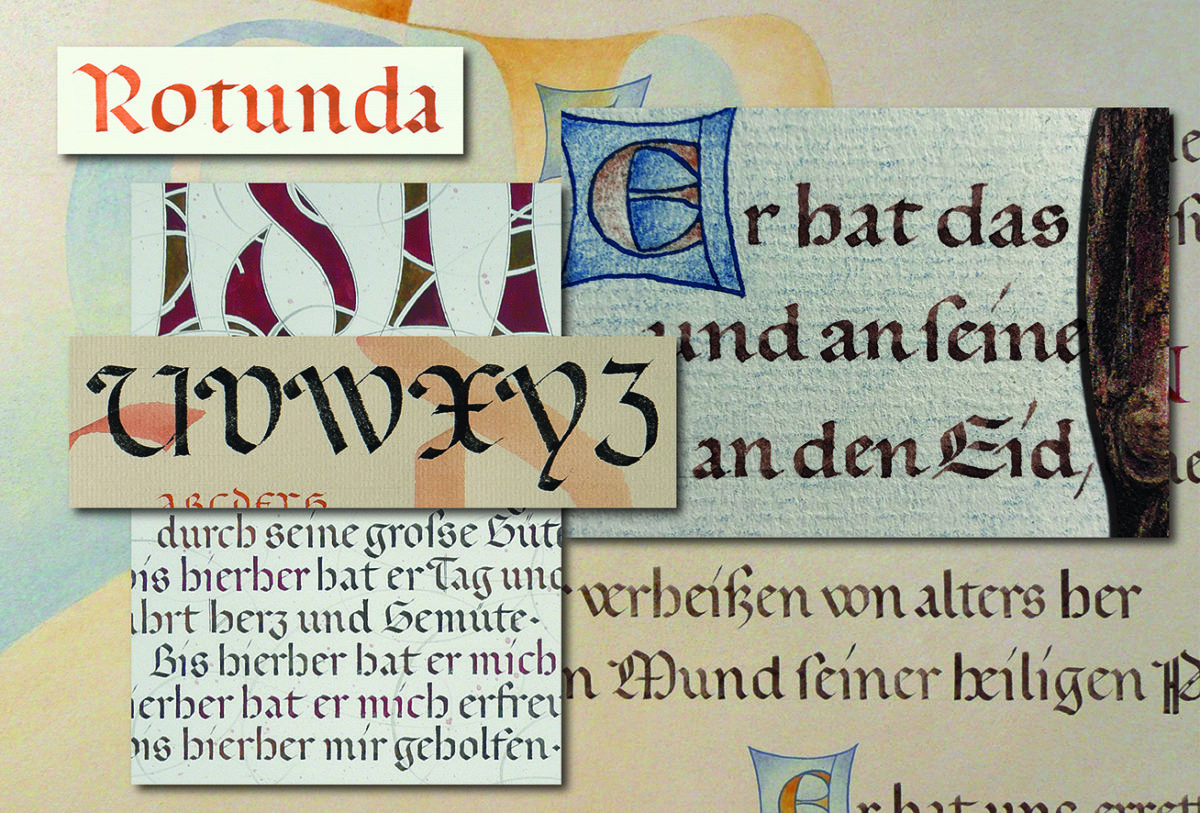 Rotunda
Er hat das
und an ſeine
an den Eid,
UVWXYZ
durch seine groſse Güte
bis hierher hat er Tag und
herz und Gemüte.
Bis hierher hat er mich
hat er mich
bis hierher mir geholfen.
verheißen von alters her
Mund ſeiner heiligen
Er hat uns